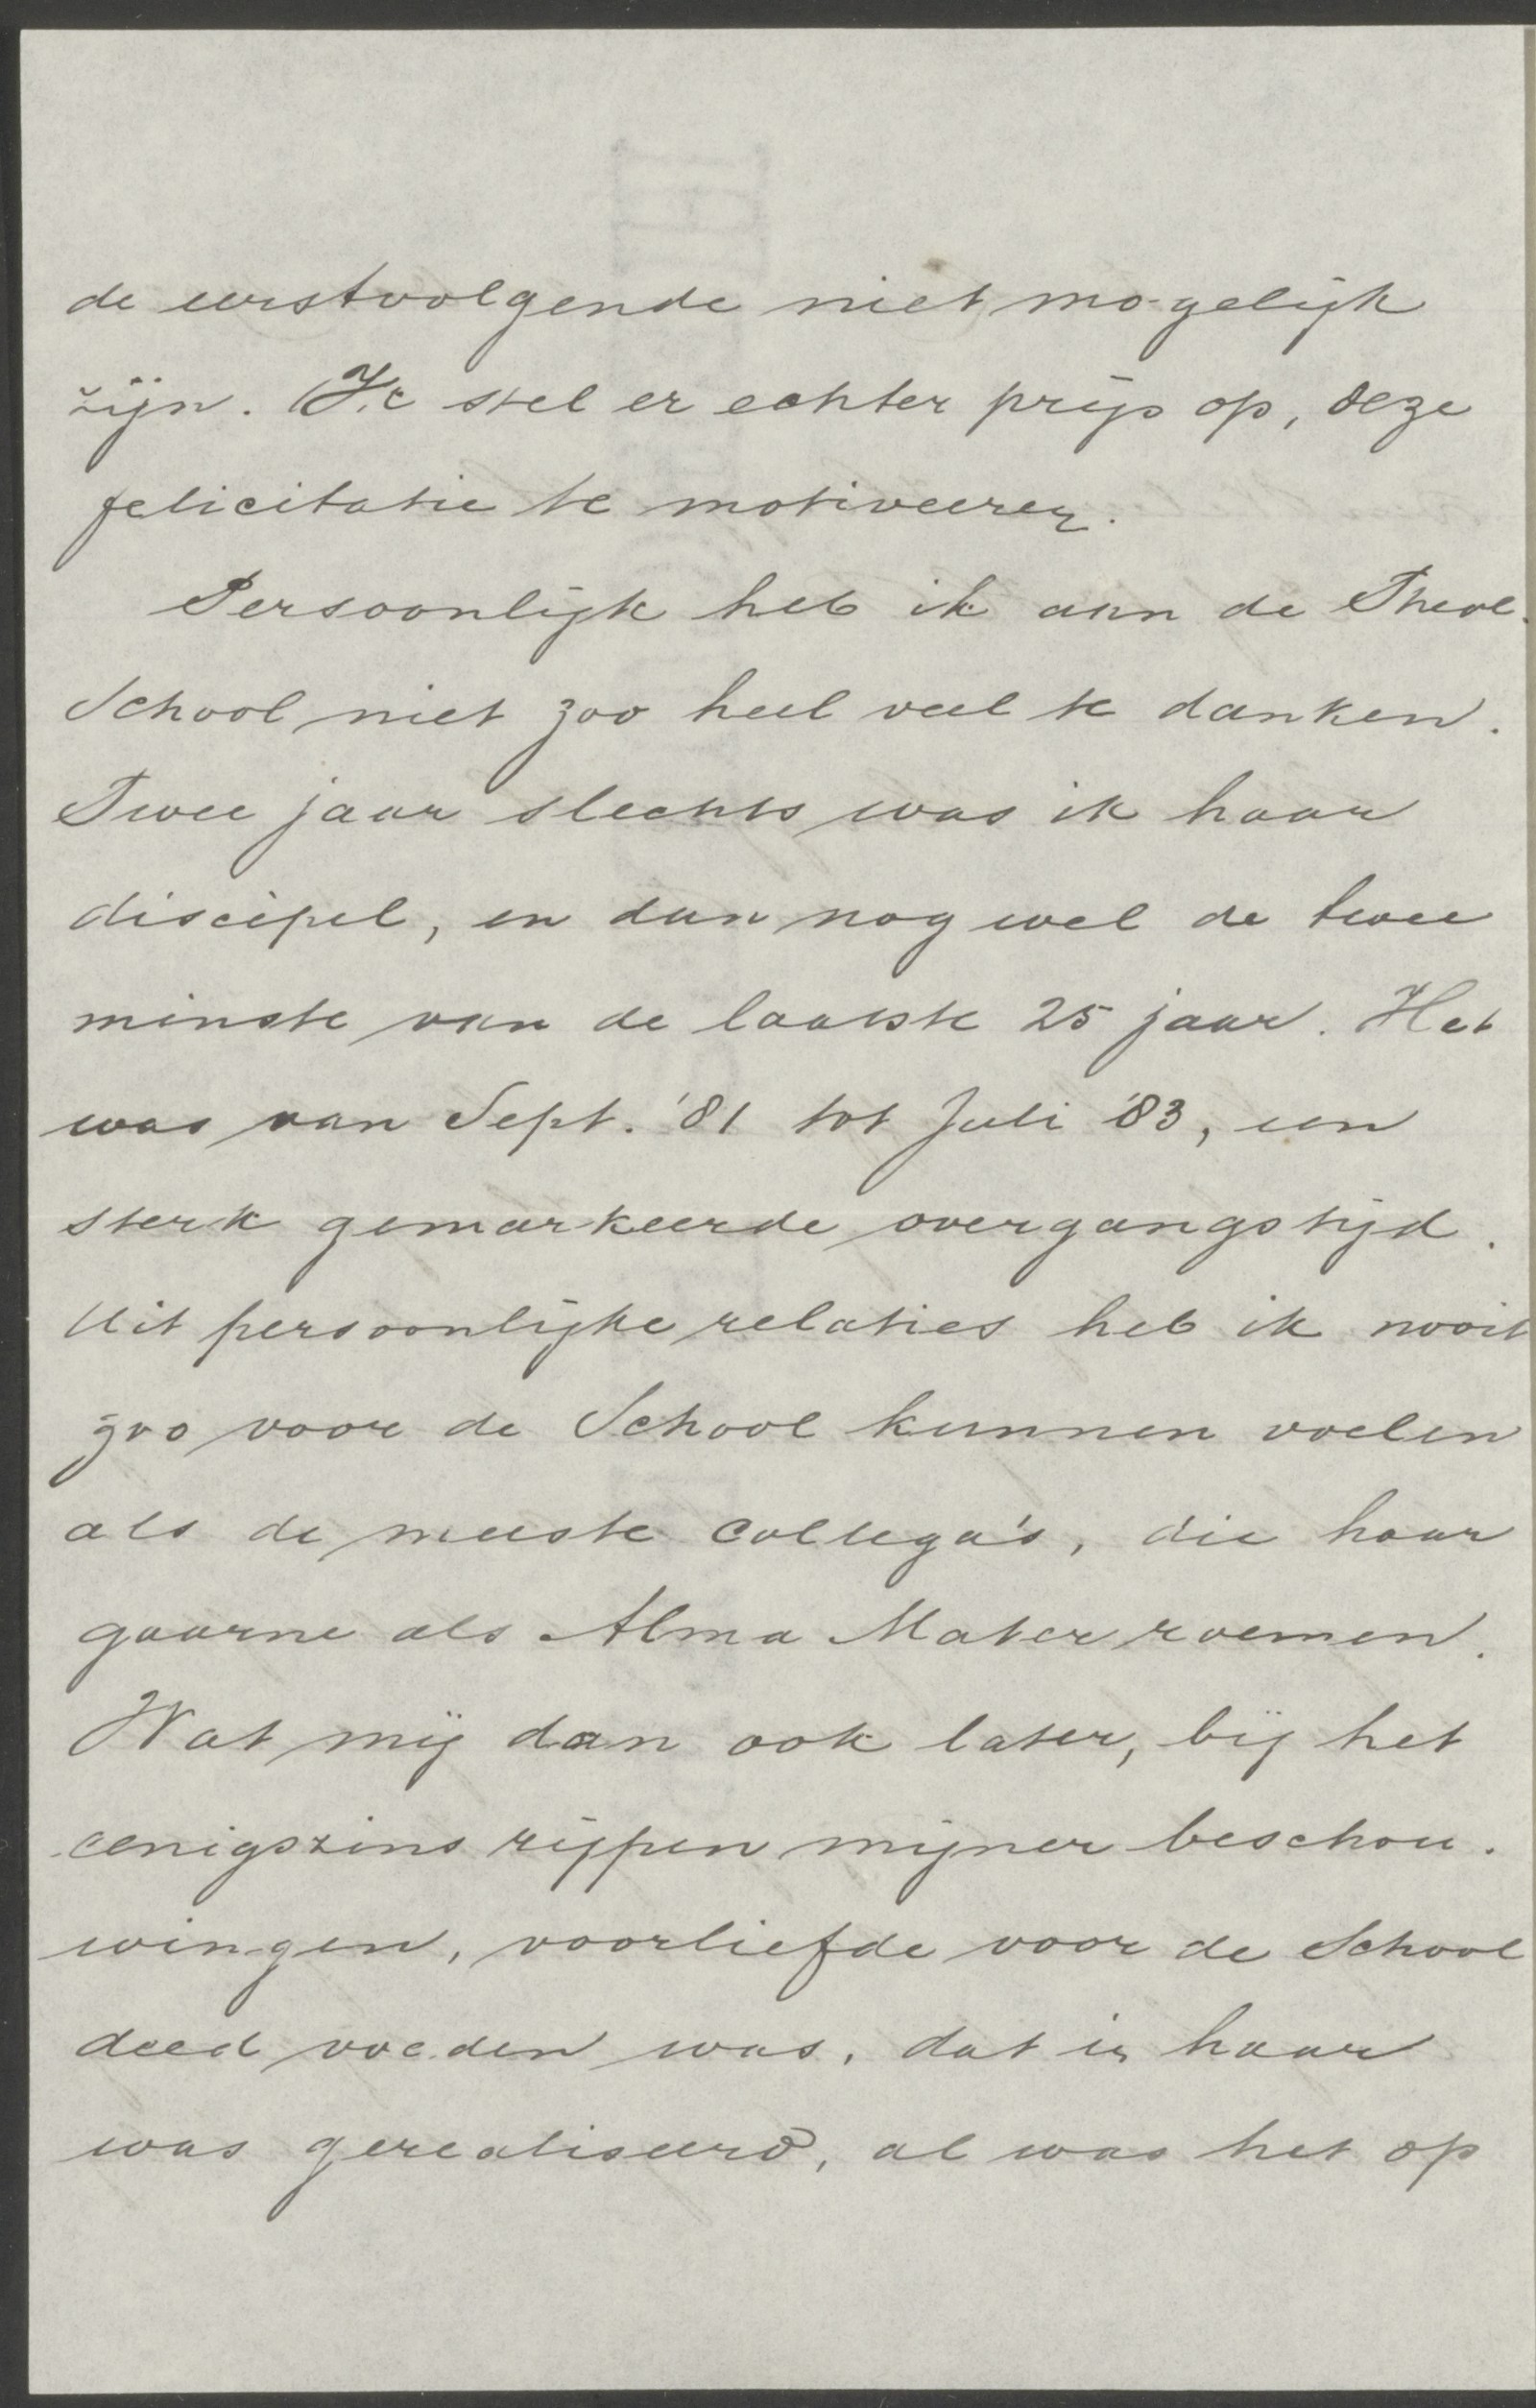 de eerstvolgende niet mogelijk
zijn. Ik stel er echter prijs op, deze
felicitatie te motiveeren.
Persoonlijk heb ik aan de Theol.
School niet zoo heel veel te danken.
Twee jaar slechts was ik haar
discipel, en dan nog wel de twee
minste van de laatste 25 jaar. Het
was van Sept. '81 tot Juli '83, een
sterk gemarkeerde overgangstijd.
Uit persoonlijke relaties heb ik nooit
zoo voor de School kunnen voelen
als de meeste collega's, die haar
gaarne als Alma Mater roemen.
Wat mij dan ook later, bij het
eenigszins rijpen mijner beschou-
wingen, voorliefde voor de School
deed voeden was, dat in haar
was gerealiseerd, al was het op